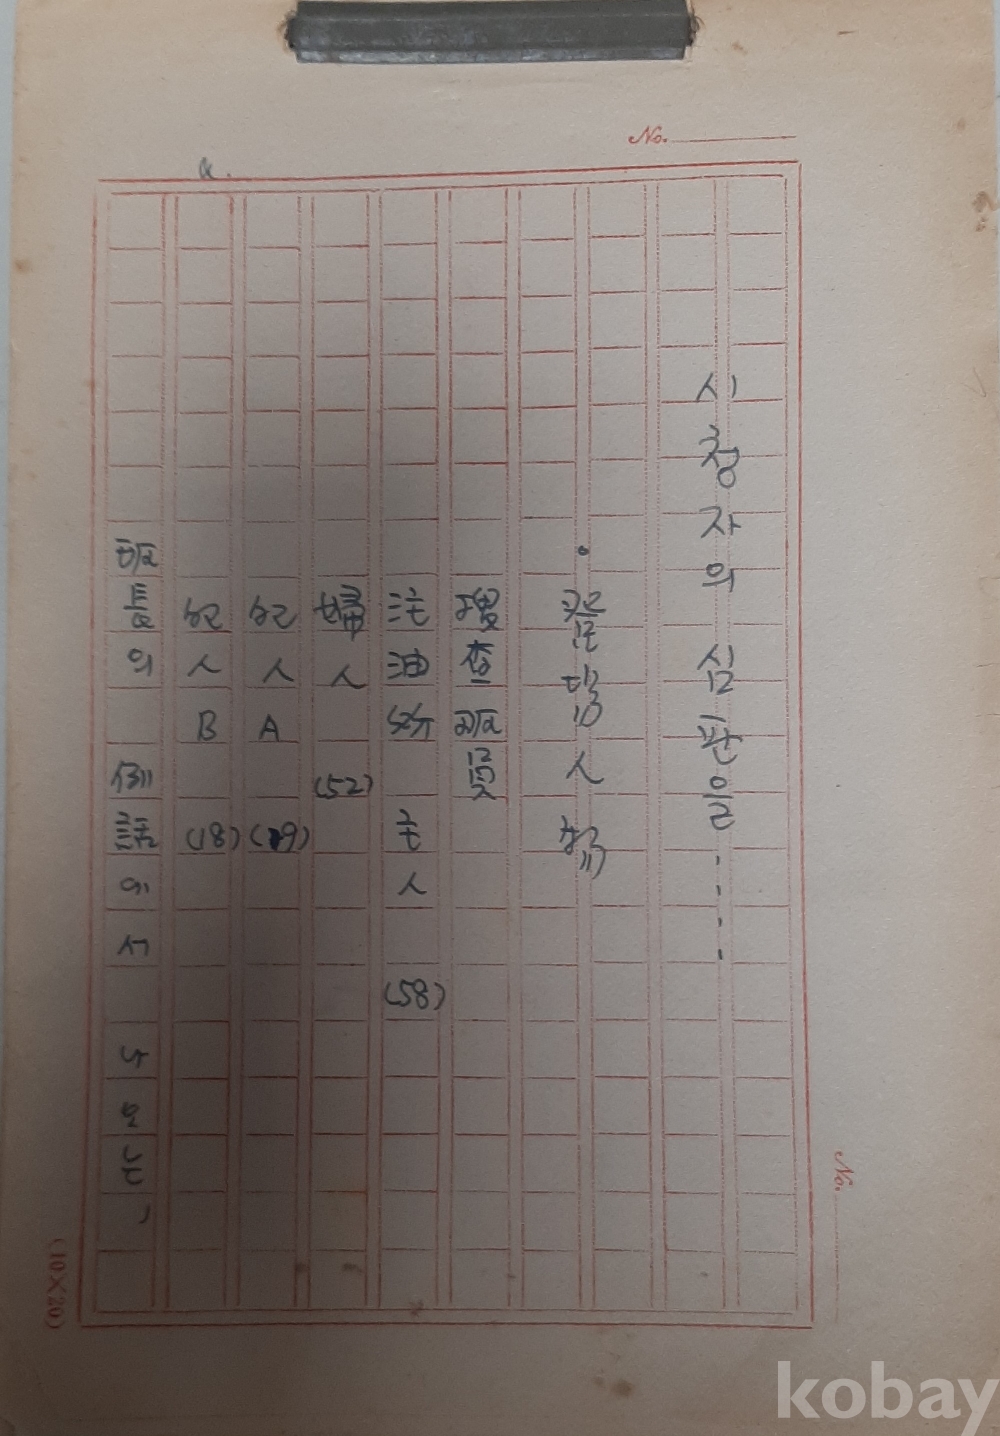 No.
시청자의 심판을 ····
· 登場人物
搜查班員
注油所 主人 (58)
婦人 (52)
犯人 A (19)
犯人 B (18)
班長의 例話에서 나오는,
No.
(10×20)
kobay